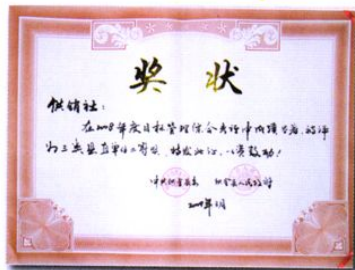 奖状
供销社：
在2008年度目标管理综合考评中成绩显著，被评
为三类县直单位二等奖，特发此证，以资鼓励！
中共 县委 县人民政府
2009年 月